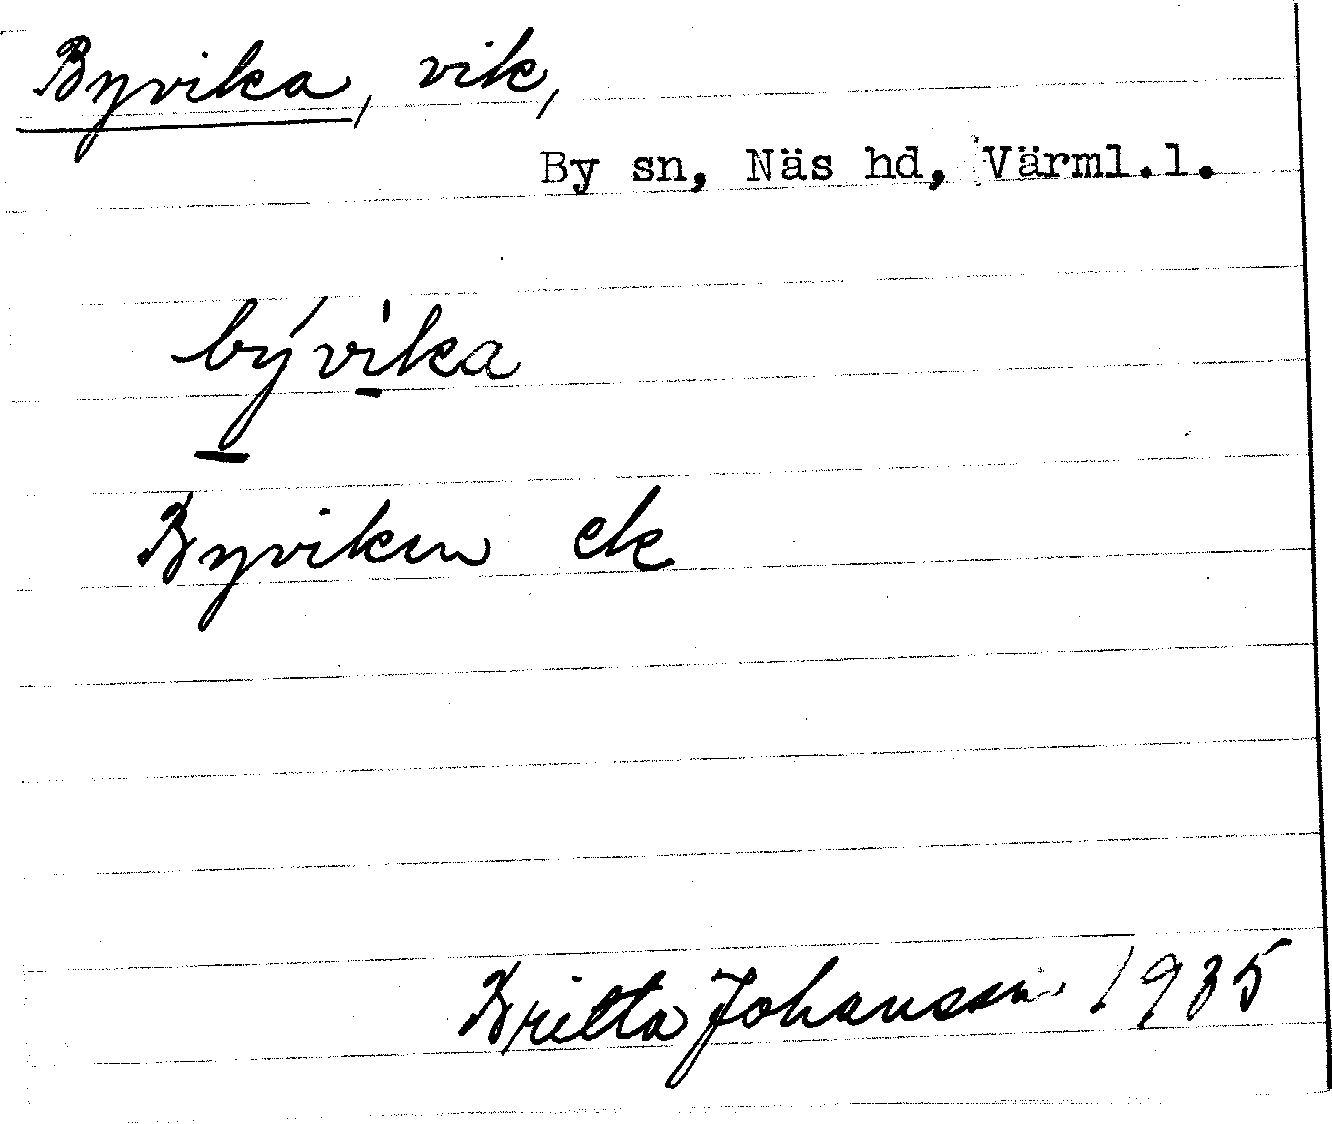 Byvika, vik,
By sn, Näs hd, Värml.l.
bývìka
Byviken ek
Britta Johansson 1935